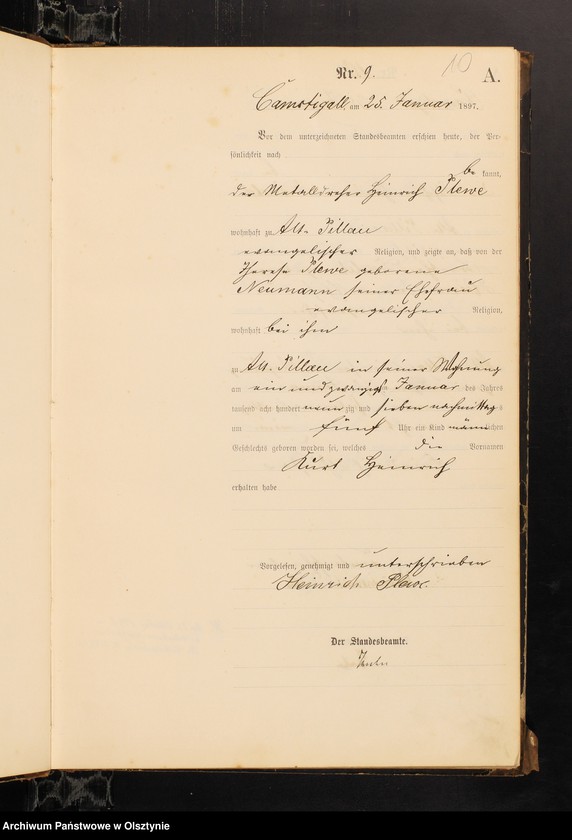 10
Nr. 9.
A.
Camstigall am 25. Januar 1897.
Vor dem unterzeichneten Standesbeamten erschien heute, der Per-
sönlichkeit nach
be kannt,
der Metalldreher Heinrich Plewe
wohnhaft zu Alt-Pillau
evangelischer Religion, und zeigte an, daß von der
Therese Plewe geborene
Neumann seiner Ehefrau
evangelischer Religion,
wohnhaft bei ihm
zu Alt-Pillau in seiner Wohnung
am ein und zwanzigsten Januar des Jahres
tausend acht hundert neunzig und sieben nachmittag
um fünf Uhr ein Kind männlichen
Geschlechts geboren worden sei, welches die Vornamen
Kurt Heinrich
erhalten habe
Vorgelesen, genehmigt und unterschrieben
Heinrich Plewe.
Der Standesbeamte.
Archiwum Państwowe w Olsztynie